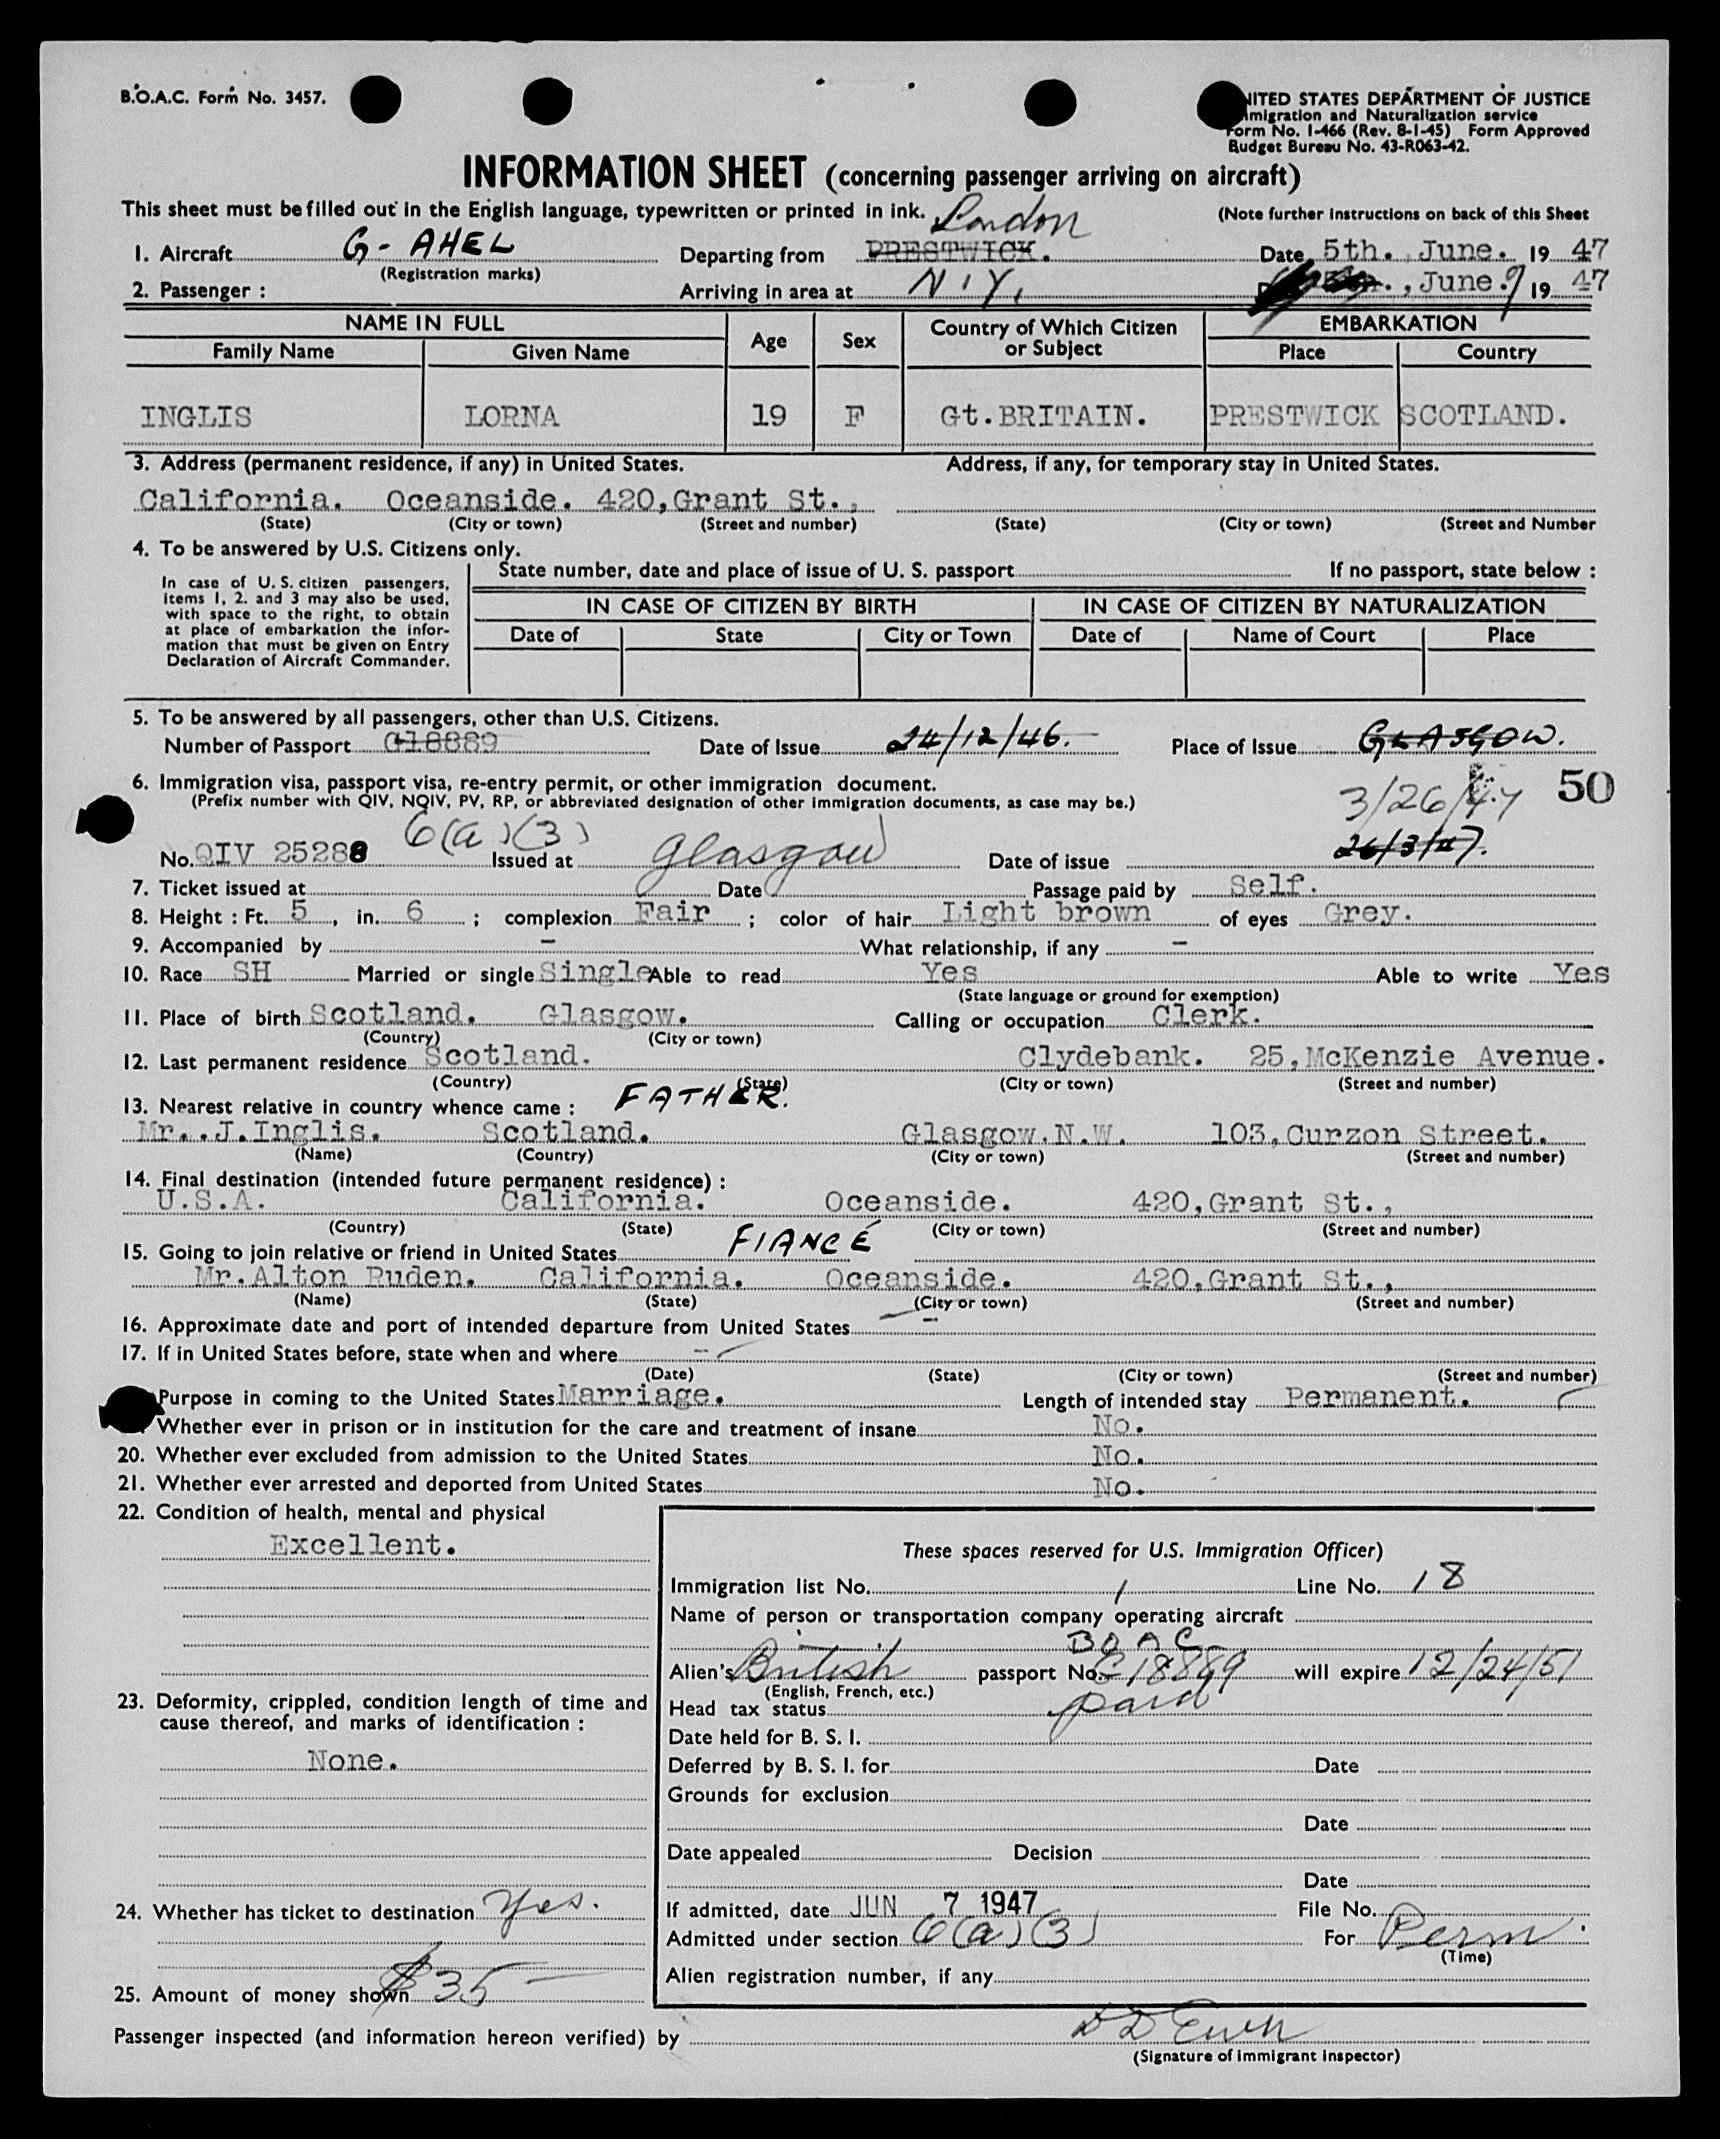 B.O.A.C. Form No. 3457.
UNITED STATES DEPARTMENT OF JUSTICE
Immigration and Naturalization service
Form No. I-466 (Rev. 8-1-45) Form Approved
Budget Bureau No. 43-R063-42.
INFORMATION SHEET (concerning passenger arriving on aircraft)
This sheet must be filled out in the English language, typewritten or printed in ink. (Note further instructions on back of this Sheet
London
1. Aircraft G-AHEL Departing from PRESTWICK. Date 5th. June. 19 47
(Registration marks)
2. Passenger : Arriving in area at N.Y. , June. 7 19 47
NAME IN FULL Age Sex Country of Which Citizen or Subject EMBARKATION
Family Name Given Name Place Country
INGLIS LORNA 19 F Gt.BRITAIN. PRESTWICK SCOTLAND.
3. Address (permanent residence, if any) in United States. Address, if any, for temporary stay in United States.
California. Oceanside. 420,Grant St.,
(State) (City or town) (Street and number) (State) (City or town) (Street and Number
4. To be answered by U.S. Citizens only.
In case of U. S. citizen passengers, items 1, 2. and 3 may also be used, with space to the right, to obtain at place of embarkation the information that must be given on Entry Declaration of Aircraft Commander.
State number, date and place of issue of U. S. passport If no passport, state below :
IN CASE OF CITIZEN BY BIRTH IN CASE OF CITIZEN BY NATURALIZATION
Date of State City or Town Date of Name of Court Place
5. To be answered by all passengers, other than U.S. Citizens.
Number of Passport C18889 Date of Issue 24/12/46. Place of Issue GLASGOW.
6. Immigration visa, passport visa, re-entry permit, or other immigration document.
(Prefix number with QIV, NQIV, PV, RP, or abbreviated designation of other immigration documents, as case may be.)
3/26/47 50
6(a)(3)
No. QIV 25288 Issued at Glasgow Date of issue 26/3/47.
7. Ticket issued at Date Passage paid by Self.
8. Height : Ft. 5 , in. 6 ; complexion Fair ; color of hair Light brown of eyes Grey.
9. Accompanied by - What relationship, if any -
10. Race SH Married or single Single Able to read Yes Able to write Yes
(State language or ground for exemption)
11. Place of birth Scotland. Glasgow. Calling or occupation Clerk.
(Country) (City or town)
12. Last permanent residence Scotland. Clydebank. 25,McKenzie Avenue.
(Country) (State) (City or town) (Street and number)
13. Nearest relative in country whence came : FATHER.
Mr..J.Inglis. Scotland. Glasgow.N.W. 103,Curzon Street.
(Name) (Country) (City or town) (Street and number)
14. Final destination (intended future permanent residence) :
U.S.A. California. Oceanside. 420,Grant St.,
(Country) (State) (City or town) (Street and number)
15. Going to join relative or friend in United States FIANCÉ
Mr.Alton Ruden. California. Oceanside. 420,Grant St.,
(Name) (State) (City or town) (Street and number)
16. Approximate date and port of intended departure from United States -
17. If in United States before, state when and where -
(Date) (State) (City or town) (Street and number)
Purpose in coming to the United States Marriage. Length of intended stay Permanent.
Whether ever in prison or in institution for the care and treatment of insane No.
20. Whether ever excluded from admission to the United States No.
21. Whether ever arrested and deported from United States No.
22. Condition of health, mental and physical
Excellent.
23. Deformity, crippled, condition length of time and
cause thereof, and marks of identification :
None.
24. Whether has ticket to destination Yes.
25. Amount of money shown $35-
These spaces reserved for U.S. Immigration Officer)
Immigration list No. 1 Line No. 18
Name of person or transportation company operating aircraft
BOAC
Alien's British passport No. C 18889 will expire 12/24/51
(English, French, etc.)
Head tax status paid
Date held for B. S. I.
Deferred by B. S. I. for Date
Grounds for exclusion
Date
Date appealed Decision
Date
If admitted, date JUN 7 1947 File No.
Admitted under section 6(a)(3) For Perm
(Time)
Alien registration number, if any
Passenger inspected (and information hereon verified) by
(Signature of immigrant inspector)